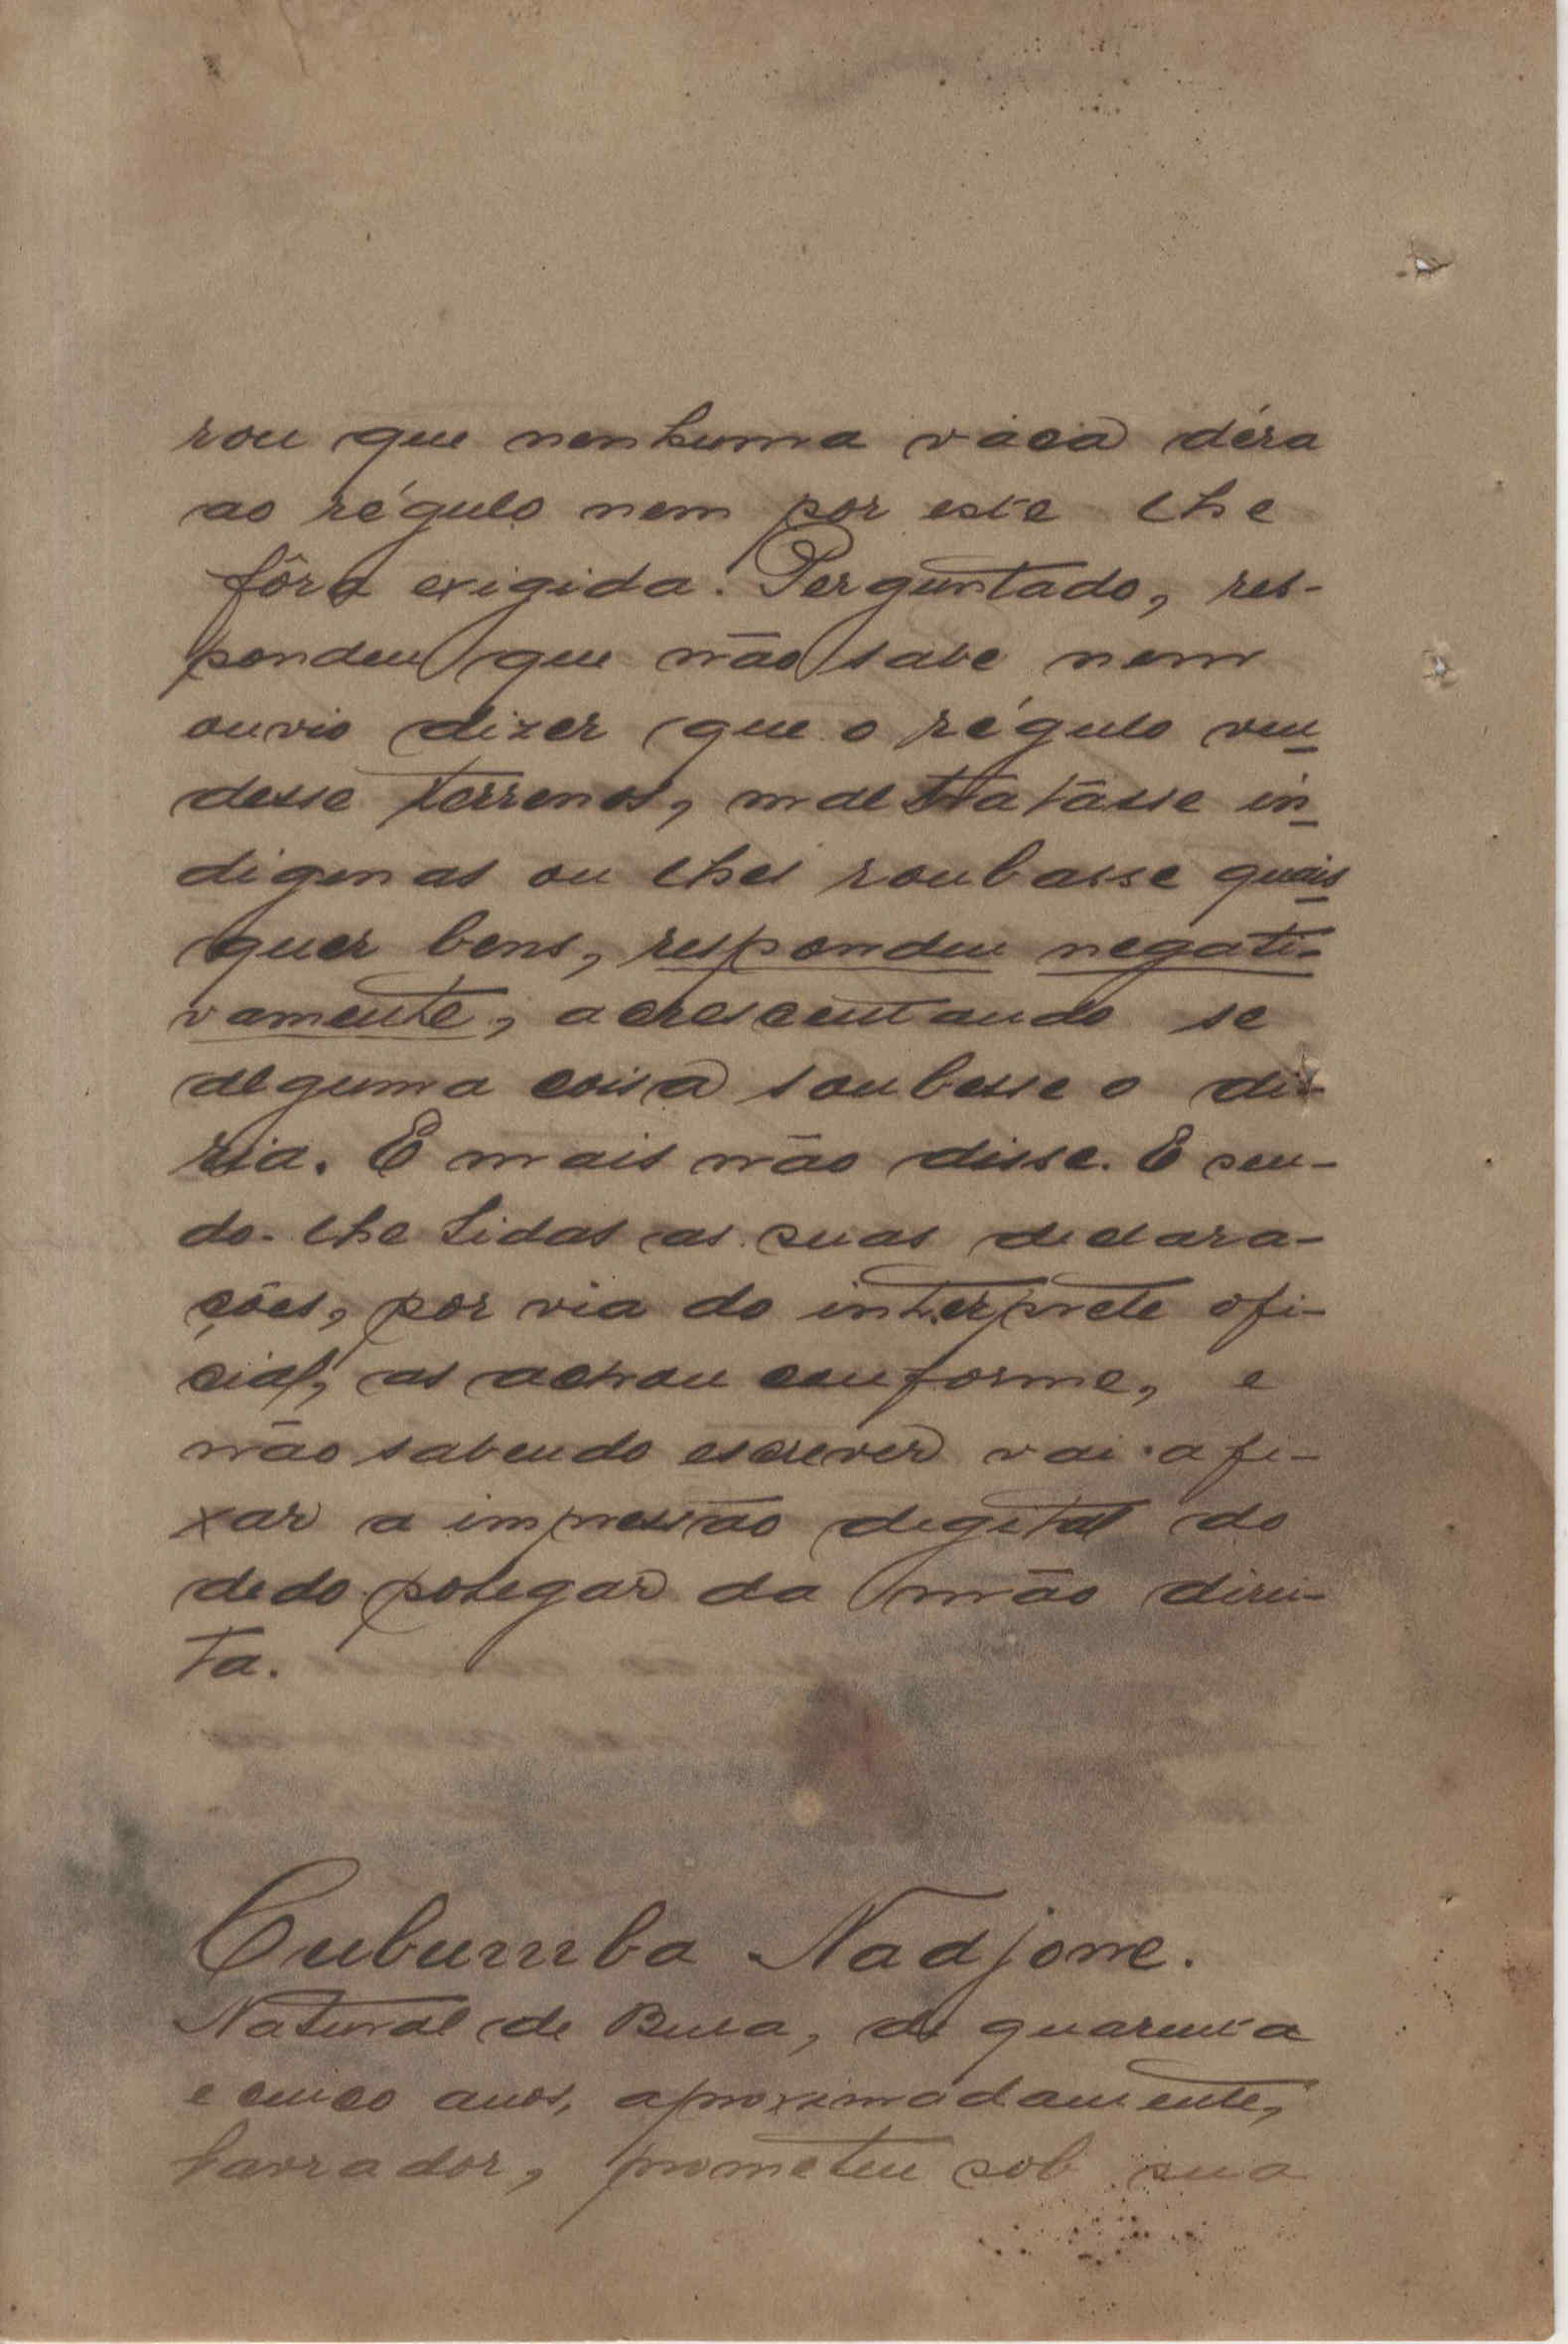 rou que nenhuma vaca déra
ao régulo nem por este lhe
fôra exigida. Perguntado, res-
pondeu que não sabe nem
ouvio dizer que o régulo ven-
desse terrenos, maltratásse in-
digenas ou lhes roubasse quais-
quer bens, respondeu negati-
vamente, acrescentando se
alguma coisa soubesse o di-
ria. E mais não disse. E sen-
do-lhe lidas as suas declara-
ções, por via do interprete ofi-
cial, as achou conforme, e
não sabendo escrever vai afi-
xar a impressão degital do
dedo polegar da mão direi-
ta.
Cubumba Nadjone.
Natural de Bula, de quarenta
e cinco anos, aproximadamente,
lavrador, prometeu sob sua